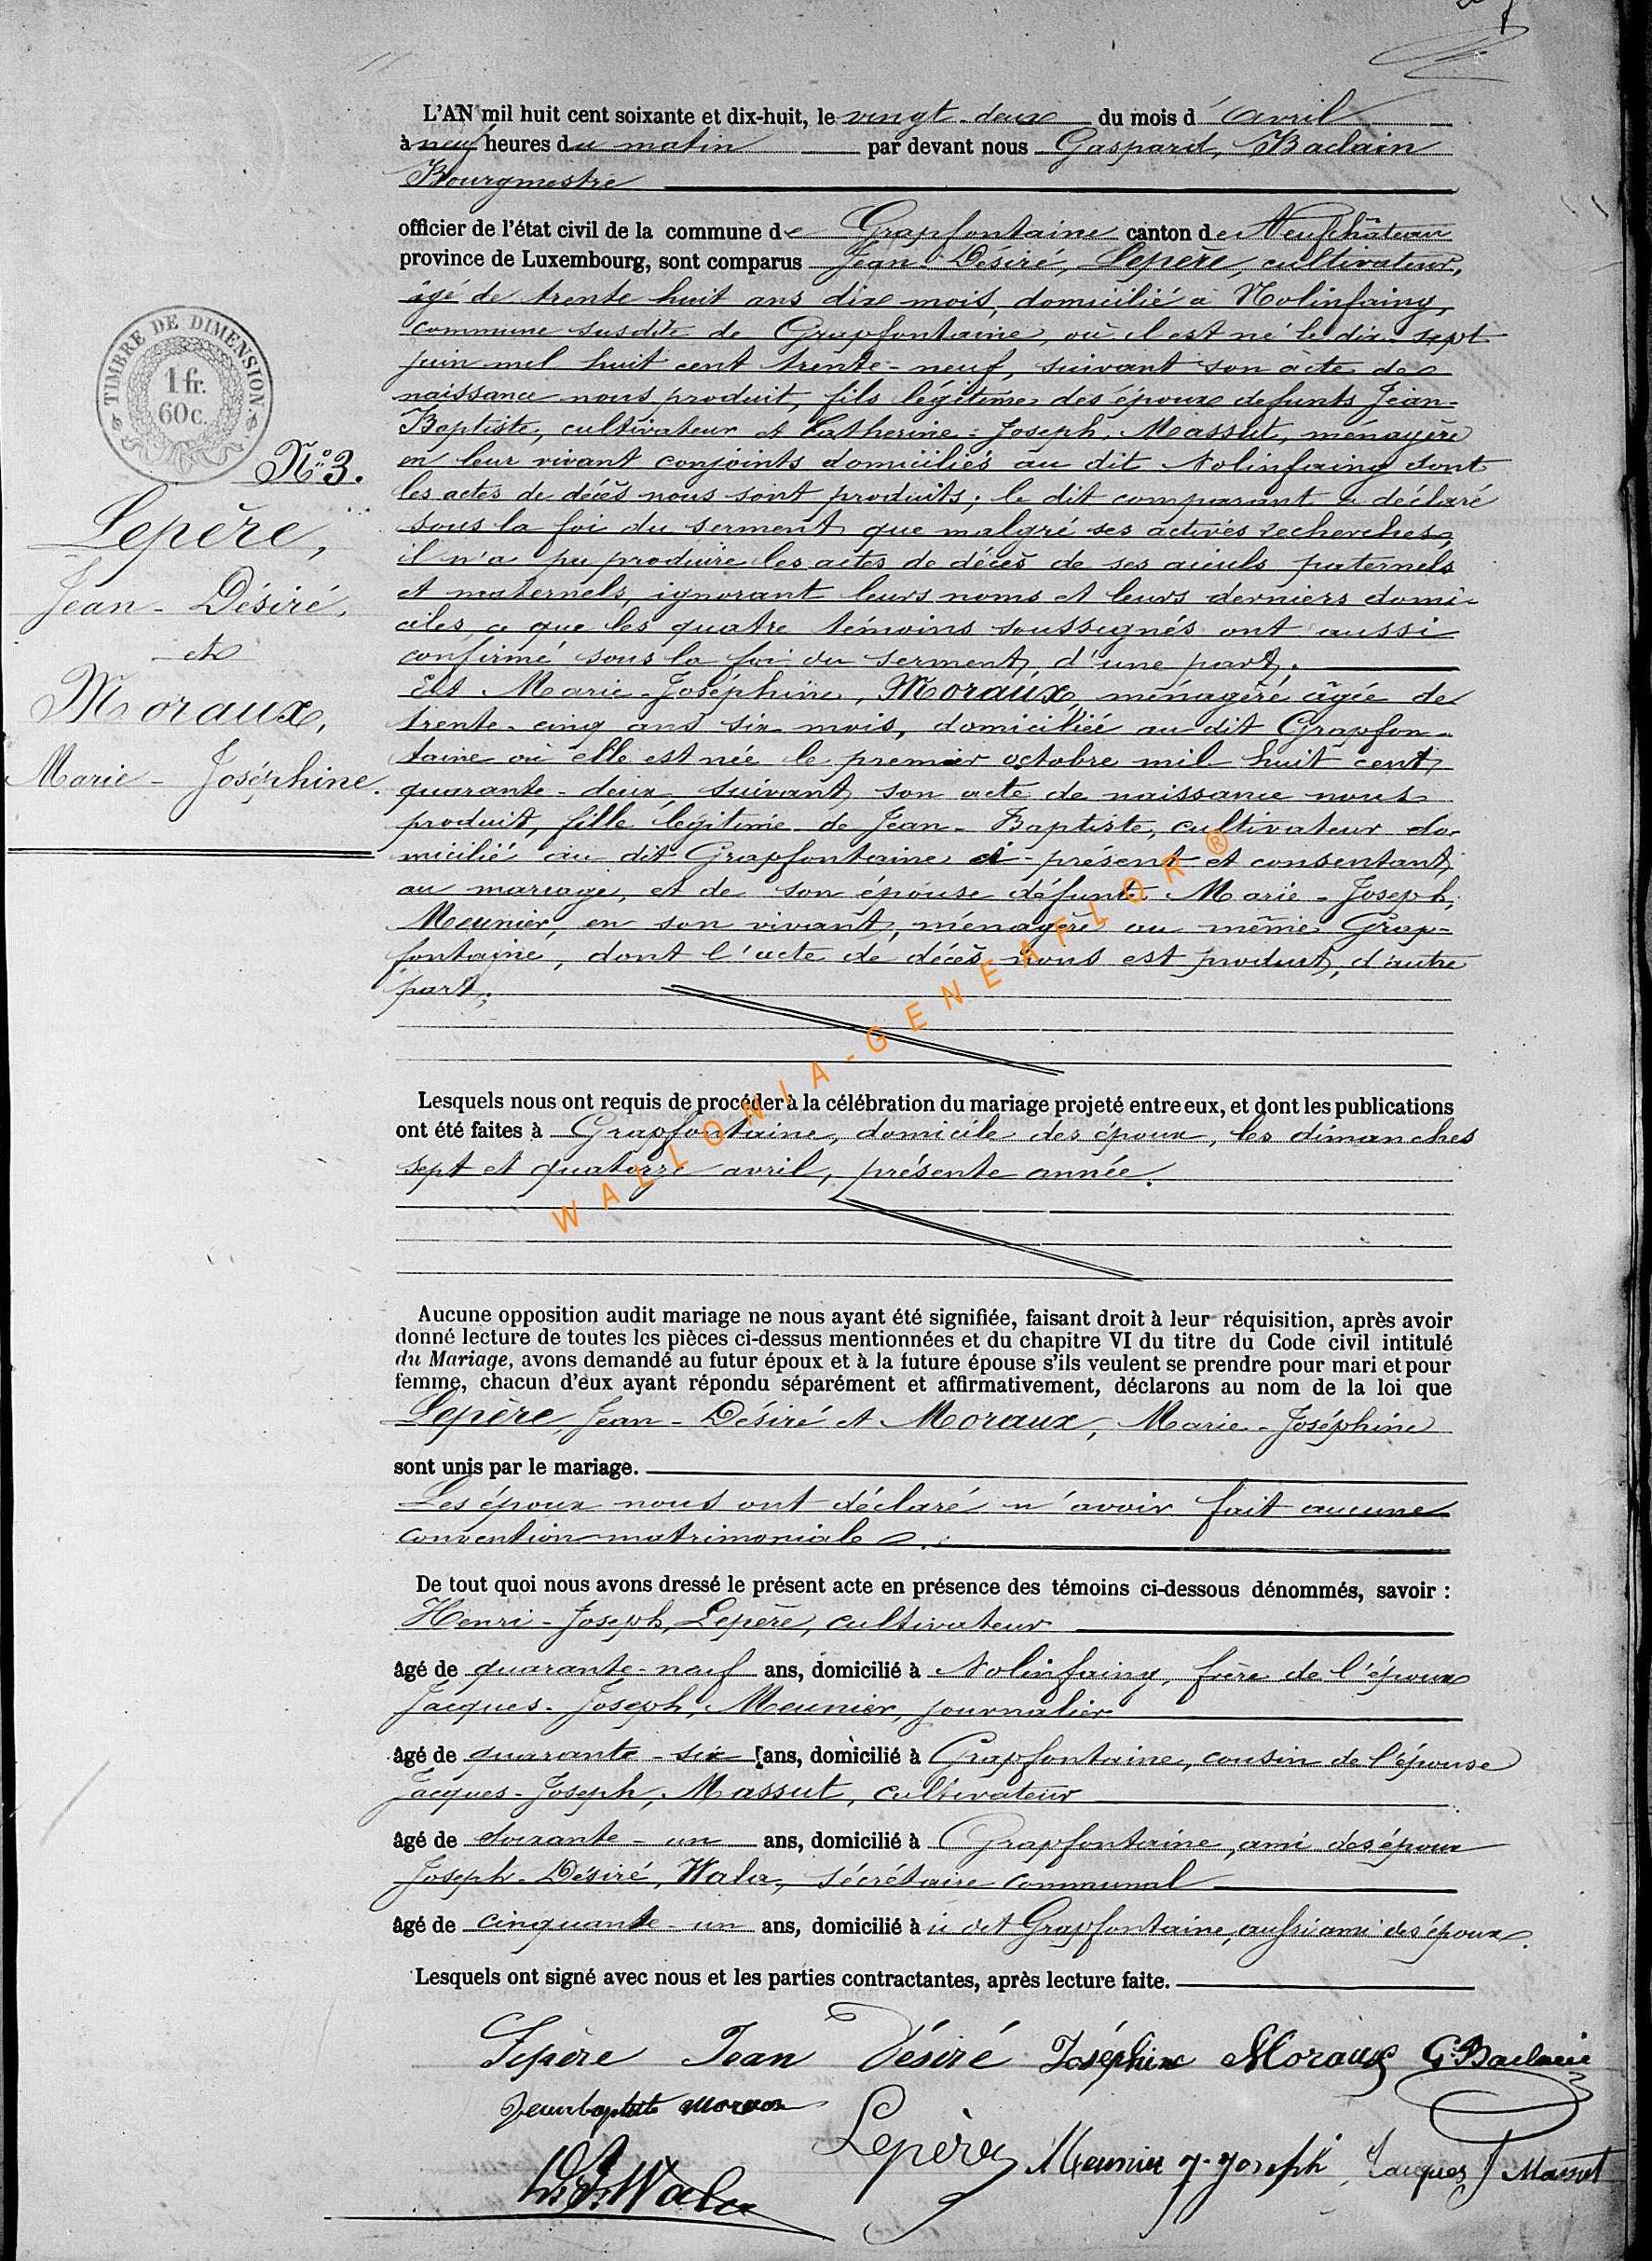 L'AN mil huit cent soixante et dix-huit, le vingt-deux du mois d'avril
à neuf heures du matin par devant nous Gaspard, Baclain
Bourgmestre
officier de l'état civil de la commune de Grapfontaine canton de Neufchâteau
province de Luxembourg, sont comparus Jean-Désiré, Lepère, cultivateur,
âgé de trente huit ans dix mois, domicilié à Nolinfaing,
commune susdite de Grapfontaine, où il est né le dix-sept
juin mil huit cent trente-neuf, suivant son acte de
naissance nous produit, fils légitime des époux defunts Jean-
Baptiste, cultivateur et Catherine-Joseph, Massut, ménagère
en leur vivant conjoints domiciliés au dit Nolinfaing dont
les actes de décès nous sont produits; le dit comparant a déclaré
sous la foi du serment que malgré ses actives recherches,
il n'a pu produire les actes de décès de ses aïeuls paternels
et maternels, ignorant leurs noms et leurs derniers domi-
ciles, ce que les quatre témoins soussignés ont aussi
confirmé sous la foi du serment, d'une part.
Et Marie-Joséphine, Moraux, ménagère âgée de
trente-cinq ans six mois, domiciliée au dit Grapfon-
taine où elle est née le premier octobre mil huit cent
quarante-deux, suivant son acte de naissance nous
produit, fille légitime de Jean-Baptiste, cultivateur do-
micilié au dit Grapfontaine ci-présent et consentant
au mariage, et de son épouse défunte Marie-Joseph,
Meunier, en son vivant, ménagère au même Grap-
fontaine, dont l'acte de décès nous est produit, d'autre
part;
N° 3.
Lepère,
Jean-Désiré,
et
Moraux,
Marie-Joséphine.
TIMBRE DE DIMENSION.
1 fr.
60 c.
Lesquels nous ont requis de procéder à la célébration du mariage projeté entre eux, et dont les publications
ont été faites à Grapfontaine, domicile des époux, les dimanches
sept et quatorze avril, présente année.
WALLONIA-GENEAFLOR ®
Aucune opposition audit mariage ne nous ayant été signifiée, faisant droit à leur réquisition, après avoir
donné lecture de toutes les pièces ci-dessus mentionnées et du chapitre VI du titre du Code civil intitulé
du Mariage, avons demandé au futur époux et à la future épouse s'ils veulent se prendre pour mari et pour
femme, chacun d'eux ayant répondu séparément et affirmativement, déclarons au nom de la loi que
Lepère, Jean-Désiré et Moraux, Marie-Joséphine
sont unis par le mariage.
Les époux nous ont déclaré n'avoir fait aucune
convention matrimoniale.
De tout quoi nous avons dressé le présent acte en présence des témoins ci-dessous dénommés, savoir :
Henri-Joseph, Lepère, cultivateur
âgé de quarante-neuf ans, domicilié à Nolinfaing, frère de l'époux
Jacques-Joseph, Meunier, journalier
âgé de quarante-six ans, domicilié à Grapfontaine, cousin de l'épouse
Jacques-Joseph, Massut, cultivateur
âgé de soixante-un ans, domicilié à Grapfontaine, ami des époux
Joseph-Désiré, Wala, sécrétaire communal
âgé de cinquante-un ans, domicilié à dit Grapfontaine, aussi ami des époux.
Lesquels ont signé avec nous et les parties contractantes, après lecture faite.
Lepère Jean Désiré Joséphine Moraux G. Baclain
Jean baptiste moraux
Lepère Meunier J. Joseph Jacques J Massut
Wala